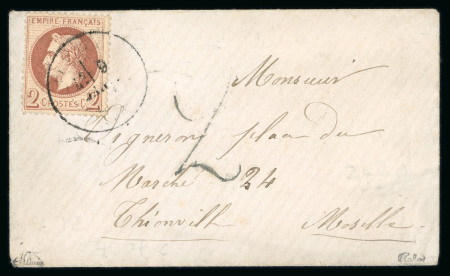 EMPIRE FRANÇAIS
2 POSTES 2
9
Monsieur
Vigneron place du
Marché 24
Thionville Moselle